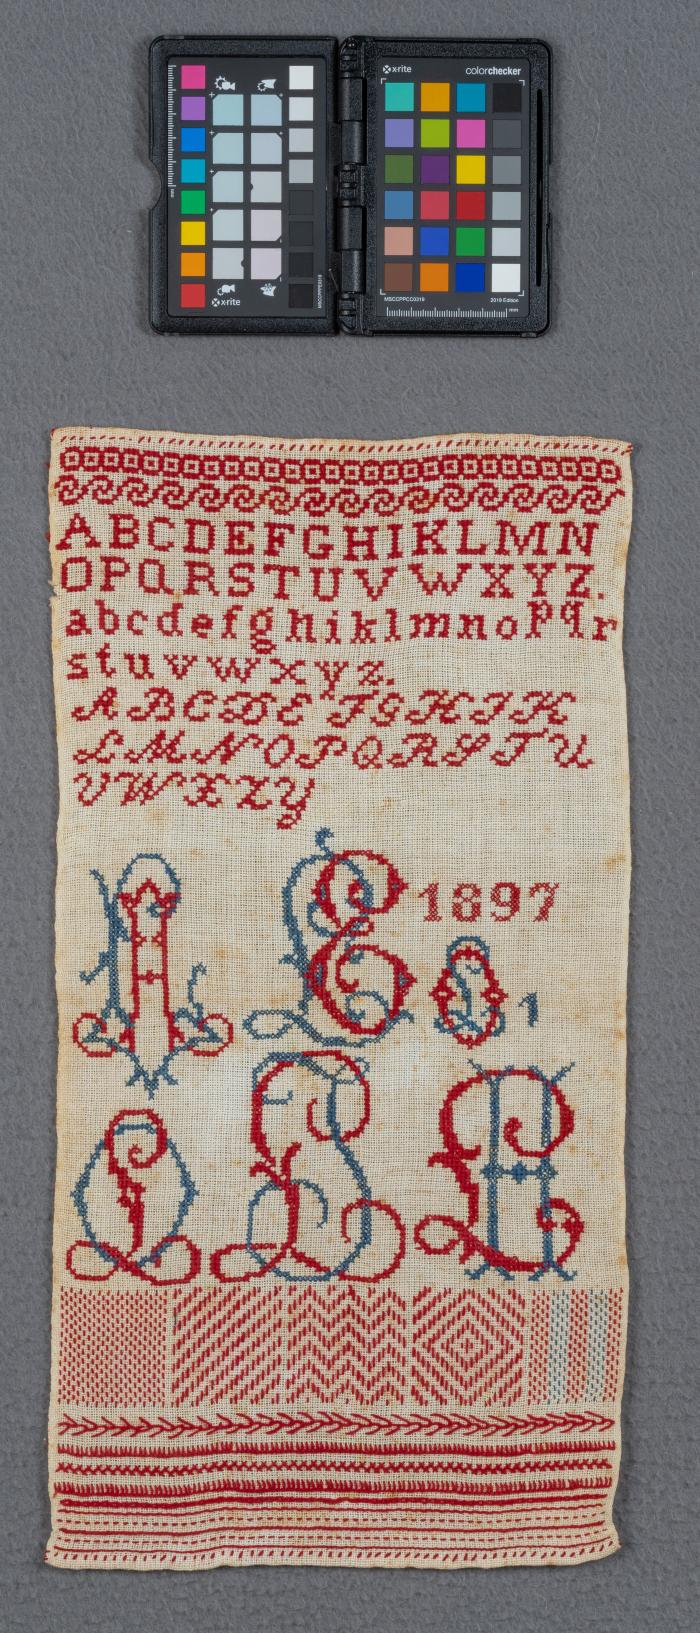 x-rite colorchecker
mm
x-rite
MSCCPPCC0319
MSCCPPCC0319 2019 Edition
mm
ABCDEFGHIKLMN
OPQRSTUVWXYZ.
abcdefghiklmnopqr
stuvwxyz.
ABCDEFGHIK
LMNOPQRSTU
VWXZY
1897
1